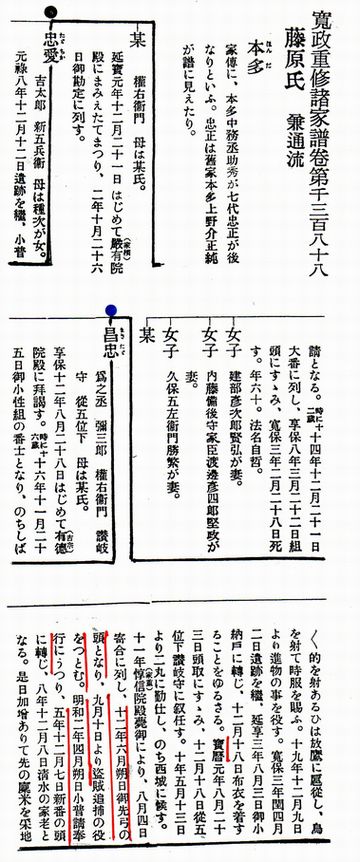 寬政重修諸家譜卷第千三百八十八
藤原氏　兼通流
本多
ほんだ
家傳に、本多中務丞助秀が七代忠正が後
なりといふ。忠正は舊家本多上野介正純
が譜に見えたり。
某
權右衞門　母は某氏。
延寶元年十二月二十一日はじめて嚴有院
(家綱)
殿にまみえたてまつり、二年十月二十六
日御勘定に列す。
忠愛
吉太郎　新五兵衞　母は種次が女。
元祿八年十二月十二日遺跡を繼、小普
請となる。時に十二歲 十四年十二月二十一日
大番に列し、享保八年三月二十二日組
頭にすゝみ、寬保三年二月二十八日死
す。年六十。法名自哲。
女子
建部彥次郎賢弘が妻。
女子
內藤備後守家臣渡邊彥四郎堅政が
妻。
女子
久保五左衞門勝繁が妻。
某
昌忠
まさたゞ
爲之丞　彌三郎　權右衞門　讚岐
守　從五位下　母は某氏。
享保十二年八月二十八日はじめて有德
(吉宗)
院殿に拜謁す。時に十六歲 十六年十一月二十
五日御小性組の番士となり、のちしば
〱的を射あるひは放鷹に扈從し、鳥
を射て時服を賜ふ。十九年十二月九日
より進物の事を役す。寬保三年閏四月
二日遺跡を繼、延享三年八月三日御小
納戶に轉じ、十二月十八日布衣を着す
ることをゆるさる。寶曆元年八月二十
三日頭取にすゝみ、十二月十八日從五
位下讚岐守に敍任す。十年五月十三日
より二丸に勤仕し、のち西城に候す。
十一年惇信院殿薨御により、八月四日
(家重)
寄合に列し、十二年六月朔日御先弓の
頭となり、九月十日より盜賊追捕の役
をつとむ。明和二年四月朔日小普請奉
行にうつり、五年十二月七日新番の頭
に轉じ、八年十二月八日淸水の家老と
なる。是日加增ありて先の廩米を采地